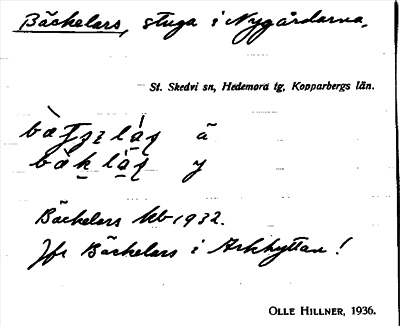 Bäckelars, stuga i Nygårdarna,
St. Skedvi sn, Hedemora tg, Kopparbergs län.
ä
y
Bäckelars kb 1932.
Jfr Bäckelars i Arkhyttan!
OLLE HILLNER, 1936.